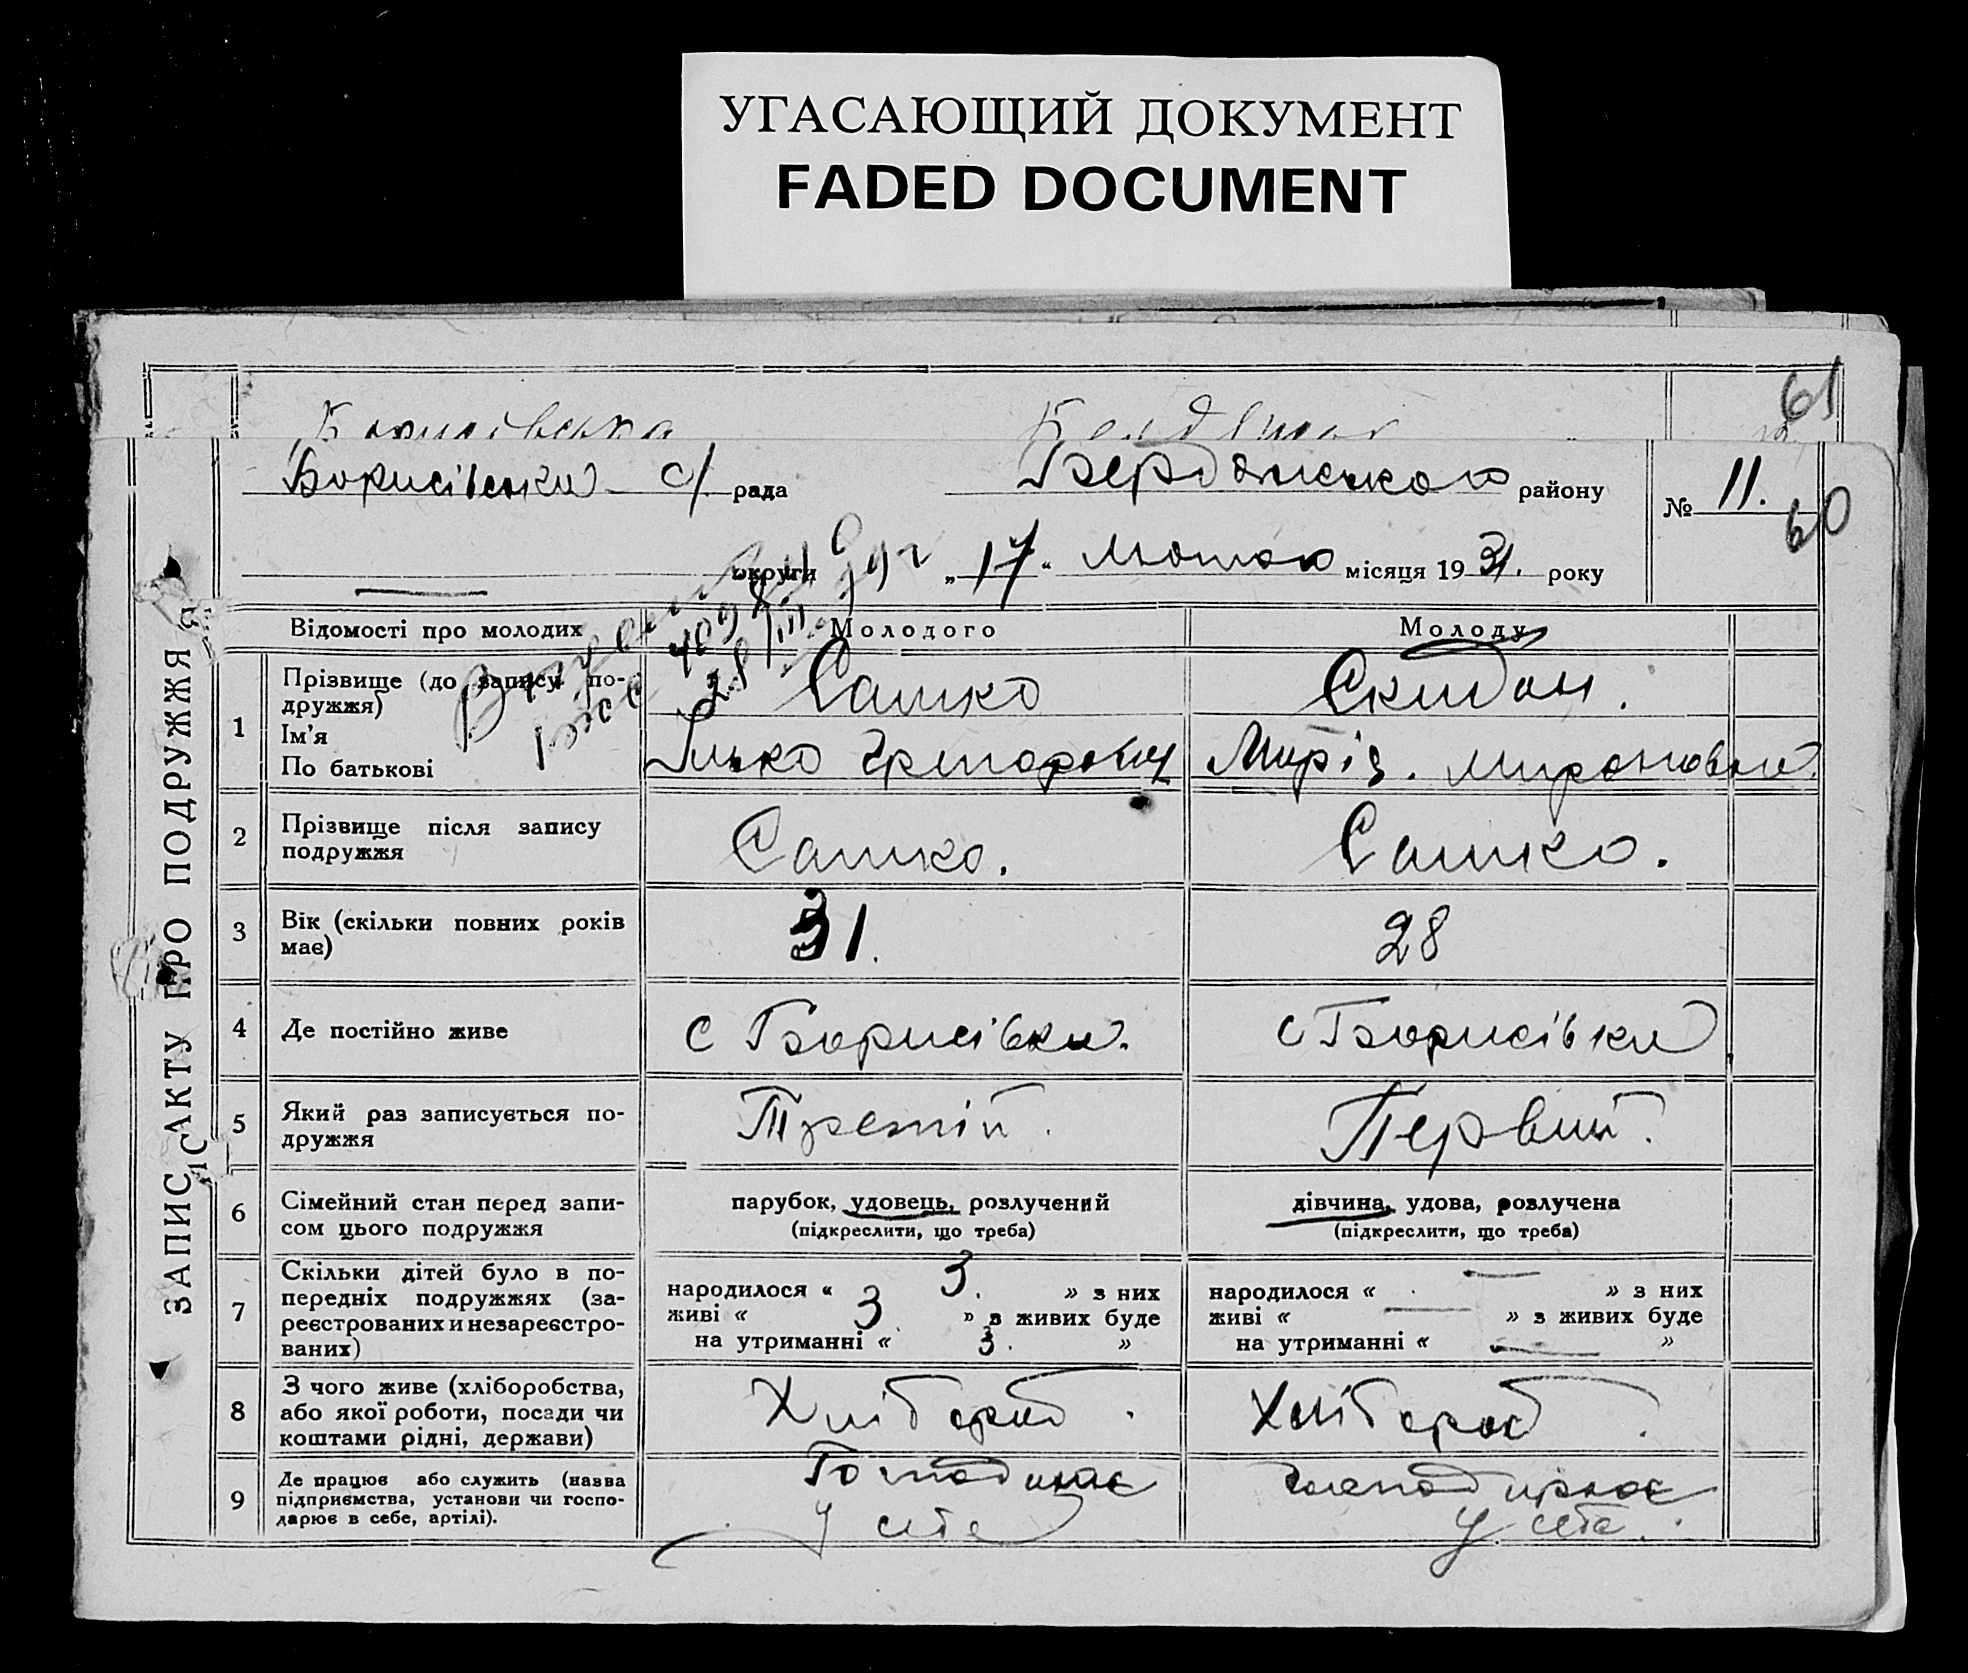 УГАСАЮЩИЙ ДОКУМЕНТ
FADED DOCUMENT
61
Борисівська
Борисівська с/ рада Бердянського району № 11.
60
округи „17“ лютого місяця 1931. року
ЗАПИС АКТУ ПРО ПОДРУЖЖЯ
Відомості про молодих Молодого Молоду
1 Прізвище (до запису подружжя) Сашко Скидан.
Ім'я
По батькові Ілько Григорович Марія. Мироновна.
2 Прізвище після запису подружжя Сашко. Сашко.
3 Вік (скільки повних років має) 31. 28
4 Де постійно живе с Борисівки. с Борисівки
5 Який раз записується подружжя Третій. Первий.
6 Сімейний стан перед записом цього подружжя парубок, удовець, розлучений дівчина, удова, розлучена
(підкреслити, що треба) (підкреслити, що треба)
7 Скільки дітей було в попередніх подружжях (зареєстрованих и незареєстрованих) народилося « 3. » з них народилося « — » з них
живі « 3. » з живих буде живі « — » з живих буде
на утриманні « 3. » на утриманні « — »
8 З чого живе (хліборобства, або якої роботи, посади чи коштами рідні, держави) Хлібороб. Хлібороб.
9 Де працює або служить (назва підприємства, установи чи господарює в себе, артілі). Господарює Господарює
у себе у себе.